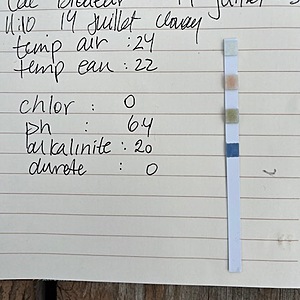 Lac 14 juillet
11h10 14 Juillet cloudy
temp air : 24
temp eau : 22
chlor : 0
ph : 6.4
alkalinite : 20
durete : 0